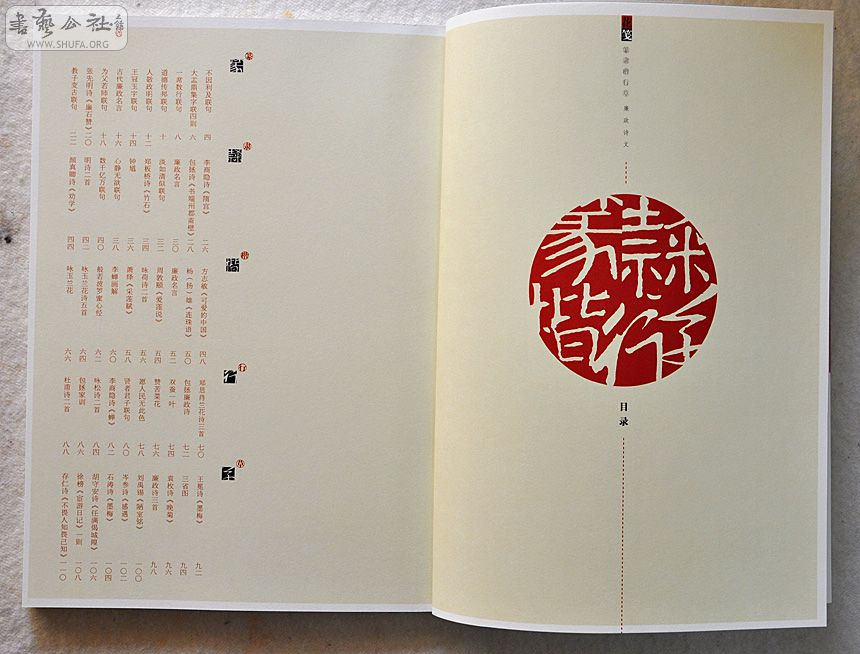 書藝公社
WWW.SHUFA.ORG
篆
不因利及联句 四
大盂鼎集字联四则 六
一席数行联句 八
道德传邦联句 十
人敬政明联句 十二
王冠玉字联句 十四
古代廉政名言 十六
为父若师联句 十八
张先明诗《廉石赞》 二〇
教子变古联句 二二
隶
李商隐诗《隋宫》 二六
包拯诗《书端州郡斋壁》 二八
廉政名言 三〇
淡如清似联句 三二
郑板桥诗《竹石》 三四
钟馗 三六
心静无欲联句 三八
数千亿万联句 四〇
明诗二首 四二
颜真卿诗《劝学》 四四
楷
方志敏《可爱的中国》 四八
杨（扬）雄《连珠语》 五〇
廉政名言 五二
周敦颐《爱莲说》 五四
咏荷诗二首 五六
萧绎《采莲赋》 五八
李蝉画解 六〇
般若波罗蜜心经 六二
咏玉兰诗五首 六四
咏玉兰花 六六
行
郑思肖兰花诗三首 七〇
包拯廉政诗 七二
双蚕一叶 七四
赞苦菜花 七六
愿人民无此色 七八
贤者君子联句 八〇
李商隐诗《蝉》 八二
咏松诗二首 八四
包拯家训 八六
杜甫诗二首 八八
王冕诗《墨梅》 九二
三省图 九四
袁枚诗《晚菊》 九六
廉政诗三首 九八
刘禹锡《陋室铭》 一〇〇
岑参诗《感遇》 一〇二
石涛诗《墨梅》 一〇四
胡守安诗《任满谒城隍》 一〇六
徐榜《宦游日记》一则 一〇八
存仁诗《不畏人知畏己知》 一一〇
笺
篆隶楷行草 廉政诗文
篆隶楷行草
目录